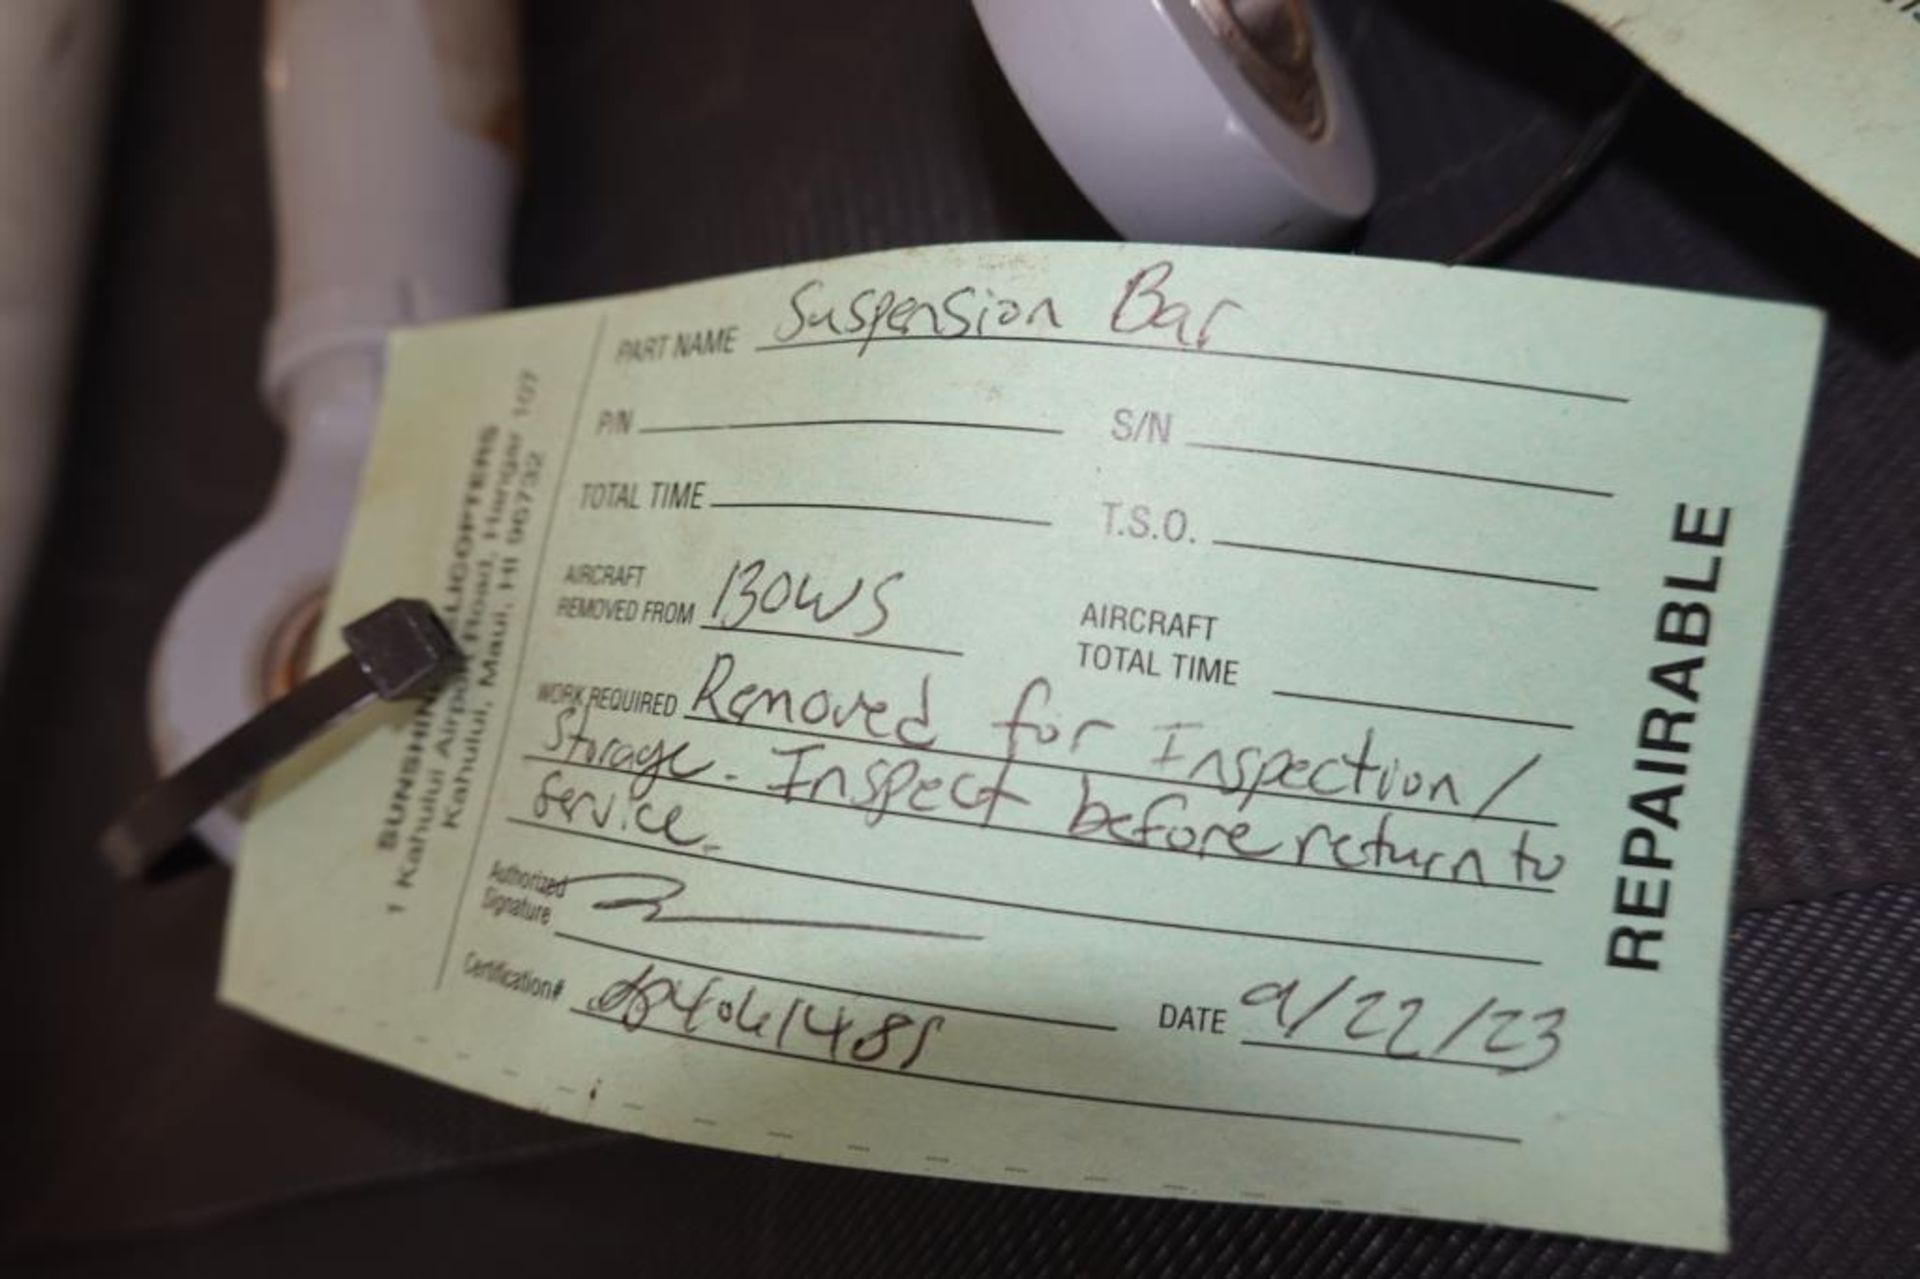 PART NAME Suspension Bar
P/N S/N
TOTAL TIME T.S.O.
AIRCRAFT REMOVED FROM 130WS AIRCRAFT TOTAL TIME
WORK REQUIRED Removed for Inspection/
Storage. Inspect before return to
service.
Authorized Signature
Certification# DATE 9/22/23
REPAIRABLE
1 Kahului Airport Road, Hangar 107
Kahului, Maui, HI 96732